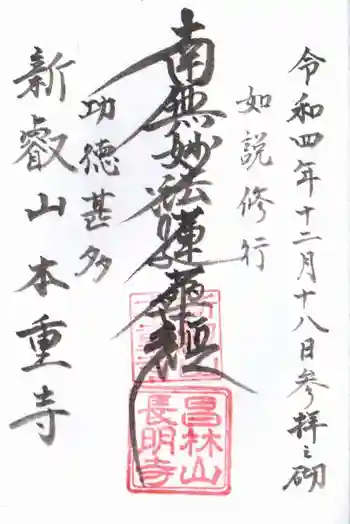 令和四年十二月十八日参拝之砌
如説修行
南無妙法蓮華経
功徳甚多
新叡山本重寺
昌林山
長明寺